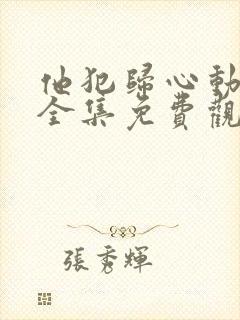 他犯歸心動
全集免費觀
張秀輝